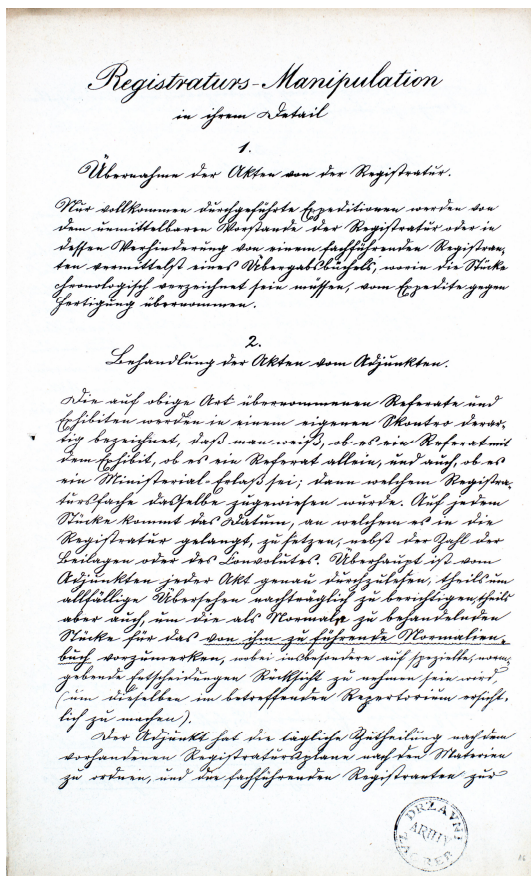 Registraturs-Manipulation
in ihrem Detail
1.
Übernahme der Akten von der Registratur.
Nur vollkommen durchgeführte Expeditionen werden von
dem unmittelbaren Vorstande der Registratur oder in
dessen Verhinderung von einem fachführenden Registran-
ten vermittelst eines Übergabsbüchels, worin die Stücke
chronologisch verzeichnet sein müssen, vom Expedite gegen
Fertigung übernommen.
2.
Behandlung der Akten vom Adjunkten.
Die auf obige Art übernommenen Referate und
Exhibiten werden in einem eigenen Skontro derar-
tig bezeichnet, daß man weiß, ob es ein Referat mit
dem Exhibit, ob es ein Referat allein, und auch, ob es
ein Ministerial-Erlaß sei; dann welchem Registra-
tursfache dasselbe zugewiesen wurde. Auf jedem
Stücke kommt das Datum, an welchem es in die
Registratur gelangt, zu setzen, nebst der Zahl der
Beilagen oder des Convolutes. Überhaupt ist vom
Adjunkten jeder Akt genau durchzusehen, theils um
allfällige Übersehen nachträglich zu berichtigen, theils
aber auch, um die als Normale zu behandelnden
Stücke für das von ihm zu führende Normalien-
buch vorzumerken, wobei insbesondere auf spezielle, norm-
gebende Entscheidungen Rücksicht zu nehmen sein wird
(um dieselben im betreffenden Repertorium ersicht-
lich zu machen).
Der Adjunkt hat die tägliche Zutheilung nach dem
vorhandenen Registratursplane nach den Materien
zu ordnen, und den fachführenden Registranten zur
DRŽAVNI
ARHIV
ZAGREB